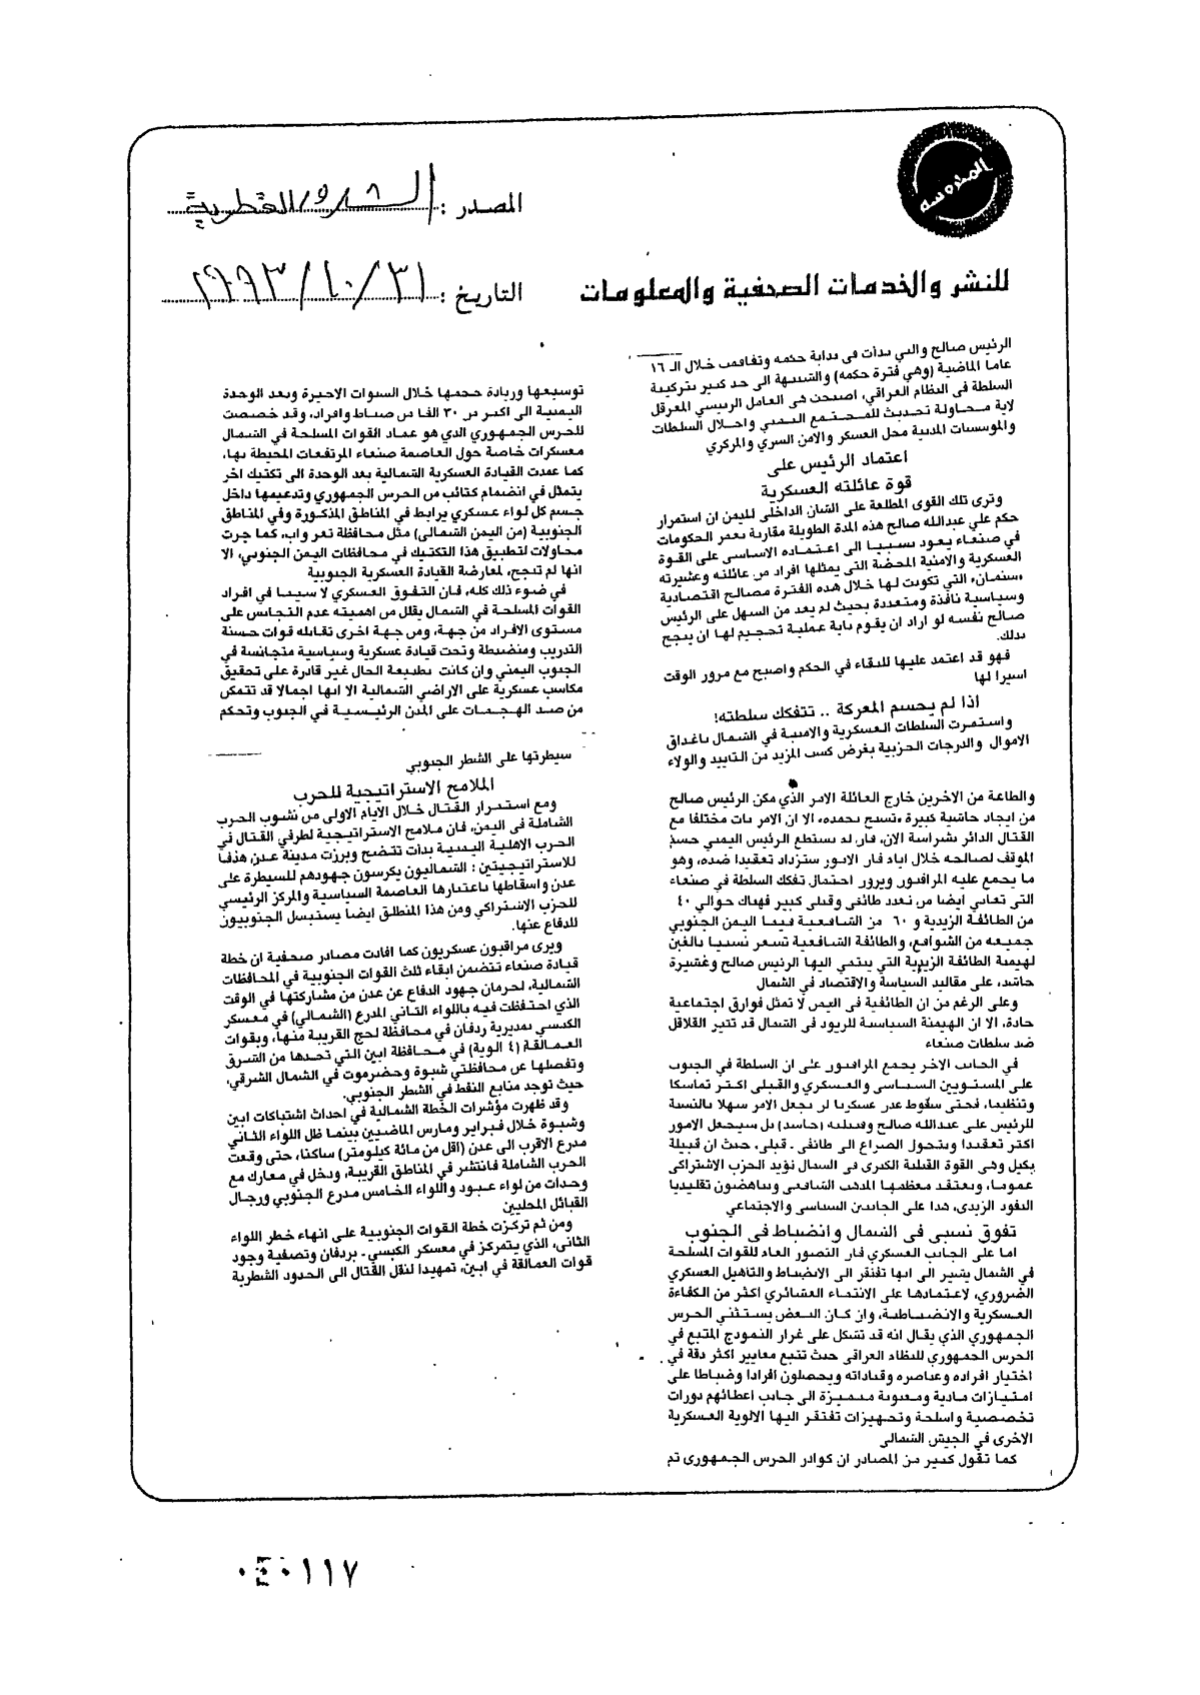 المحروسه
المصدر : الشرق القطرية
للنشر والخدمات الصحفية والمعلومات
التاريخ : ٣١/١٠/١٩٩٣
الرئيس صالح والتي بدأت في بداية حكمه وتفاقمت خلال الـ ١٦
عاما الماضية (وهي فترة حكمه) والشبيهة الى حد كبير بتركيبة
السلطة في النظام العراقي، اصبحت هي العامل الرئيسي المعرقل
لاية محاولة تحديث للمجتمع اليمني واحلال السلطات
والمؤسسات المدنية محل العسكر والامن السري والمركزي
اعتماد الرئيس على
قوة عائلته العسكرية
وترى تلك القوى المطلعة على الشان الداخلي لليمن ان استمرار
حكم علي عبدالله صالح هذه المدة الطويلة مقارنة بعمر الحكومات
في صنعاء يعود نسبيا الى اعتماده الاساسي على القوة
العسكرية والامنية المحضة التي يمثلها افراد من عائلته وعشيرته
«سنحان» التي تكونت لها خلال هذه الفترة مصالح اقتصادية
وسياسية نافذة ومتعددة بحيث لم يعد من السهل على الرئيس
صالح نفسه لو اراد ان يقوم باية عملية تحجيم لها ان ينجح
بذلك.
فهو قد اعتمد عليها للبقاء في الحكم واصبح مع مرور الوقت
اسيرا لها
اذا لم يحسم المعركة .. تتفكك سلطته!
واستمرت السلطات العسكرية والامنية في الشمال باغداق
الاموال والدرجات الحزبية بغرض كسب المزيد من التاييد والولاء
والطاعة من الاخرين خارج العائلة الامر الذي مكن الرئيس صالح
من ايجاد حاشية كبيرة «تسبح بحمده» الا ان الامر بات مختلفا مع
القتال الدائر بشراسة الان، فان لم يستطع الرئيس اليمني حسم
الموقف لصالحه خلال ايام فان الامور ستزداد تعقيدا ضده، وهو
ما يجمع عليه المراقبون وبروز احتمال تفكك السلطة في صنعاء
التي تعاني ايضا من تعدد طائفي وقبلي كبير فهناك حوالي ٤٠
من الطائفة الزيدية و ٦٠ من الشافعية فيما اليمن الجنوبي
جميعه من الشوافع، والطائفة الشافعية تشعر نسبيا بالغبن
لهيمنة الطائفة الزيدية التي ينتمي اليها الرئيس صالح وعشيرة
حاشد، على مقاليد السياسة والاقتصاد في الشمال
وعلى الرغم من ان الطائفية في اليمن لا تمثل فوارق اجتماعية
حادة، الا ان الهيمنة السياسية للزيود في الشمال قد تثير القلاقل
ضد سلطات صنعاء
في الجانب الاخر يجمع المراقبون على ان السلطة في الجنوب
على المستويين السياسي والعسكري والقبلي اكثر تماسكا
وتنظيما، فحتى سقوط عدن عسكريا لن يجعل الامر سهلا بالنسبة
للرئيس على عبدالله صالح وقبيلته (حاشد) بل سيجعل الامور
اكثر تعقيدا ويتحول الصراع الى طائفي - قبلي، حيث ان قبيلة
بكيل وهي القوة القبلية الكبرى في الشمال تؤيد الحزب الاشتراكي
عموما، ويعتقد معظمها المذهب الشافعي ويناهضون تقليديا
النفوذ الزيدي، هذا على الجانبين السياسي والاجتماعي
تفوق نسبي في الشمال وانضباط في الجنوب
اما على الجانب العسكري فان التصور العام للقوات المسلحة
في الشمال يشير الى انها تفتقر الى الانضباط والتاهيل العسكري
الضروري، لاعتمادها على الانتماء العشائري اكثر من الكفاءة
العسكرية والانضباطية، وان كان البعض يستثني الحرس
الجمهوري الذي يقال انه قد تشكل على غرار النموذج المتبع في
الحرس الجمهوري للنظام العراقي حيث تتبع معايير اكثر دقة في
اختيار افراده وعناصره وقياداته ويحصلون افرادا وضباطا على
امتيازات مادية ومعنوية متميزة الى جانب اعطائهم دورات
تخصصية واسلحة وتجهيزات تفتقر اليها الالوية العسكرية
الاخرى في الجيش الشمالي
كما تقول كثير من المصادر ان كوادر الحرس الجمهوري تم
توسيعها وزيادة حجمها خلال السنوات الاخيرة وبعد الوحدة
اليمنية الى اكثر من ٣٠ الفا من ضباط وافراد، وقد خصصت
للحرس الجمهوري الذي هو عماد القوات المسلحة في الشمال
معسكرات خاصة حول العاصمة صنعاء المرتفعات المحيطة بها،
كما عمدت القيادة العسكرية الشمالية بعد الوحدة الى تكتيك اخر
يتمثل في انضمام كتائب من الحرس الجمهوري وتدعيمها داخل
جسم كل لواء عسكري يرابط في المناطق المذكورة وفي المناطق
الجنوبية (من اليمن الشمالي) مثل محافظة تعز واب، كما جرت
محاولات لتطبيق هذا التكتيك في محافظات اليمن الجنوبي، الا
انها لم تنجح، لمعارضة القيادة العسكرية الجنوبية
في ضوء ذلك كله، فان التفوق العسكري لا سيما في افراد
القوات المسلحة في الشمال يقلل من اهميته عدم التجانس على
مستوى الافراد من جهة، ومن جهة اخرى تقابله قوات حسنة
التدريب ومنضبطة وتحت قيادة عسكرية وسياسية متجانسة في
الجنوب اليمني وان كانت بطبيعة الحال غير قادرة على تحقيق
مكاسب عسكرية على الاراضي الشمالية الا انها اجمالا قد تتمكن
من صد الهجمات على المدن الرئيسية في الجنوب وتحكم
سيطرتها على الشطر الجنوبي
الملامح الاستراتيجية للحرب
ومع استمرار القتال خلال الايام الاولى من نشوب الحرب
الشاملة في اليمن، فان ملامح الاستراتيجية لطرفي القتال في
الحرب الاهلية اليمنية بدات تتضح وبرزت مدينة عدن، هدفا
للاستراتيجيتين : الشماليون يكرسون جهودهم للسيطرة على
عدن واسقاطها باعتبارها العاصمة السياسية والمركز الرئيسي
للحزب الاشتراكي ومن هذا المنطلق ايضا يستبسل الجنوبيون
للدفاع عنها.
ويرى مراقبون عسكريون كما افادت مصادر صحفية ان خطة
قيادة صنعاء تتضمن ابقاء ثلث القوات الجنوبية في المحافظات
الشمالية، لحرمان جهود الدفاع عن عدن من مشاركتها في الوقت
الذي احتفظت فيه باللواء الثاني المدرع (الشمالي) في معسكر
الكبسي بمديرية ردفان في محافظة لحج القريبة منها، وبقوات
العمالقة (٤ الوية) في محافظة ابين التي تحدها من الشرق
وتفصلها عن محافظتي شبوة وحضرموت في الشمال الشرقي،
حيث توجد منابع النفط في الشطر الجنوبي.
وقد ظهرت مؤشرات الخطة الشمالية في احداث اشتباكات ابين
وشبوة خلال فبراير ومارس الماضيين بينما ظل اللواء الثاني
مدرع الاقرب الى عدن (اقل من مائة كيلومتر) ساكنا، حتى وقعت
الحرب الشاملة فانتشر في المناطق القريبة، ودخل في معارك مع
وحدات من لواء عبود واللواء الخامس مدرع الجنوبي ورجال
القبائل المحليين
ومن ثم تركزت خطة القوات الجنوبية على انهاء خطر اللواء
الثاني، الذي يتمركز في معسكر الكبسي - بردفان وتصفية وجود
قوات العمالقة في ابين، تمهيدا لنقل القتال الى الحدود الشطرية
٠٤٠١١٧